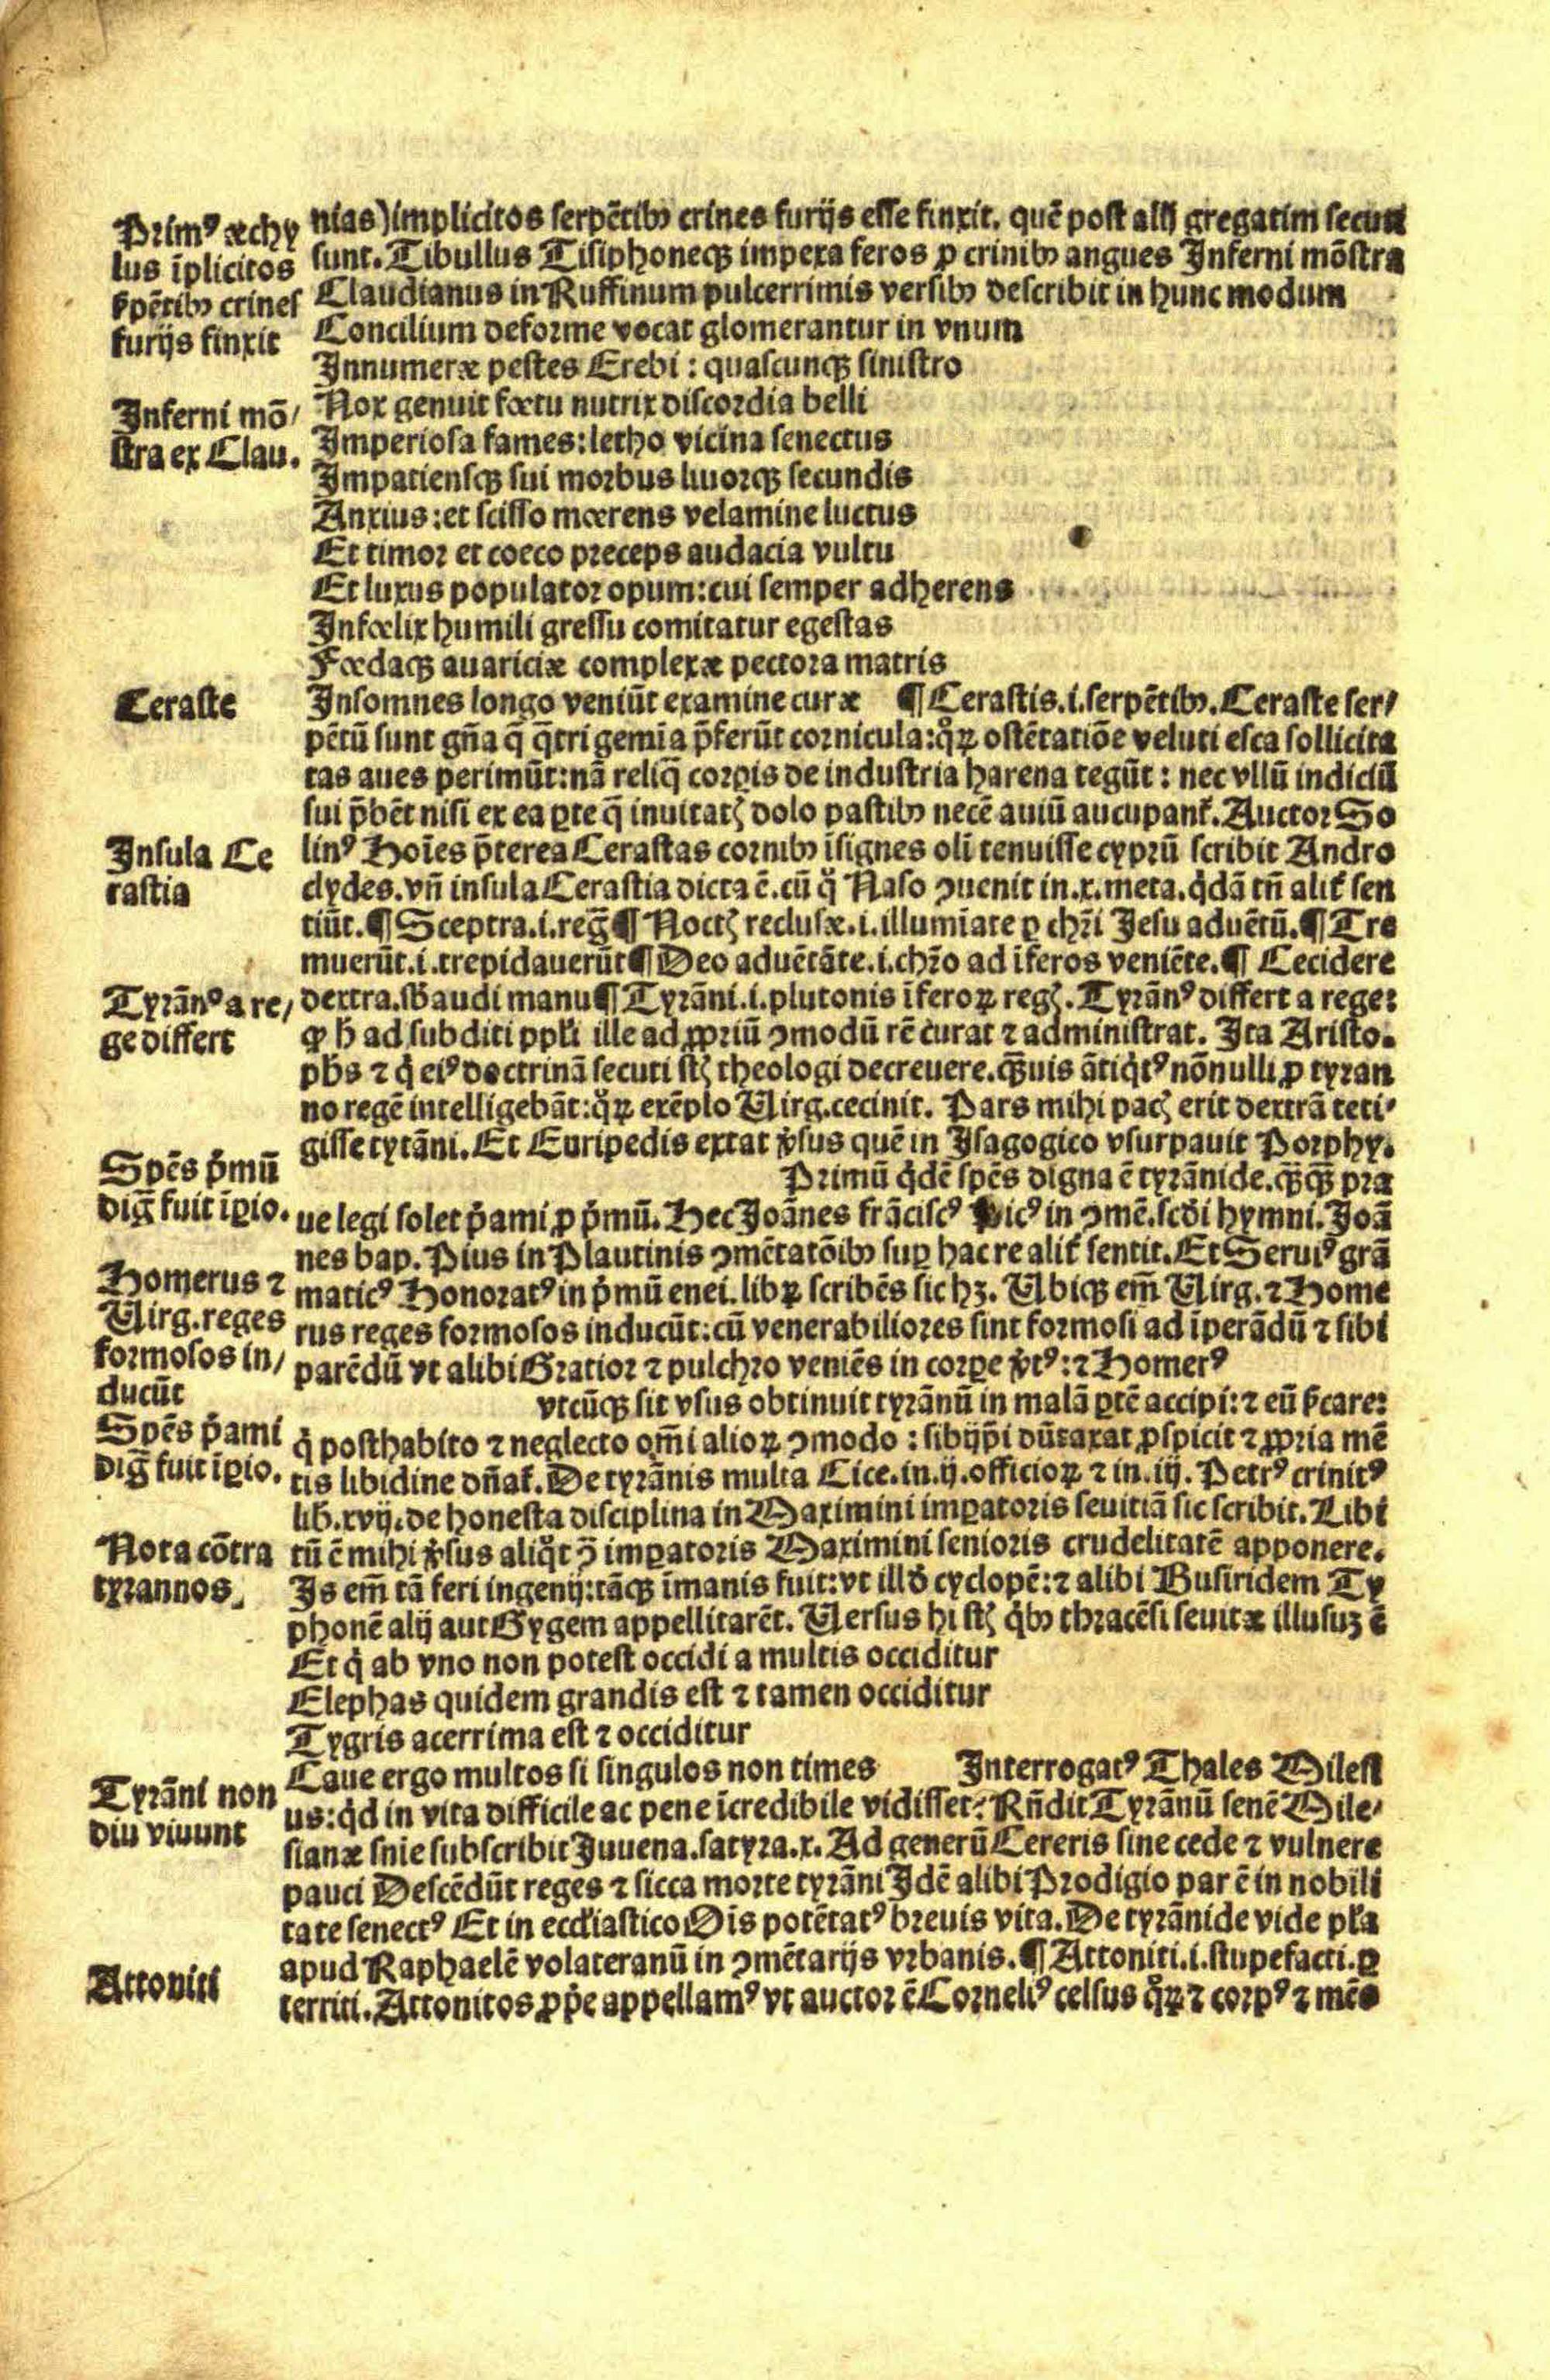 Primꝰ æchy
lus īplicitos
ẜpētibꝫ crines
furijs finxit
Inferni mō/
stra ex Clau.
Ceraste
Insula Ce
rastia
Tyrānꝰ a re/
ge differt
Spēs p̄mū
diḡ fuit īꝑio.
Homerus ⁊
Uirg. reges
formosos in/
ducūt
Spēs p̄ami
diḡ fuit īꝑio.
Nota cōtra
tyrannos.
Tyrāni non
diu viuunt
Attoniti
nias) implicitos serpētibꝫ crines furijs esse finxit. quē post alij gregatim secuti
sunt. Tibullus Tisiphoneqꝫ impexa feros ꝓ crinibꝫ angues Inferni mōstra
Claudianus in Ruffinum pulcerrimis versibꝫ describit in hunc modum
Concilium deforme vocat glomerantur in vnum
Innumeræ pestes Erebi : quascunqꝫ sinistro
Nox genuit fœtu nutrix discordia belli
Imperiosa fames: letho vicina senectus
Impatiensqꝫ sui morbus liuorqꝫ secundis
Anxius: et scisso mœrens velamine luctus
Et timor et coeco preceps audacia vultu
Et luxus populator opum: cui semper adherens
Infœlix humili gressu comitatur egestas
Fœdaqꝫ auariciæ complexæ pectora matris
Insomnes longo veniūt examine curæ ¶ Cerastis.i.serpētibꝫ. Ceraste ser/
pētū sunt gn̄a q̄ q̄trigemīa p̄ferūt cornicula: qͦꝝ ostētatiōe veluti esca sollicita
tas aues perimūt: nā reliq̄ corꝑis de industria harena tegūt : nec vllū indiciū
sui p̄bēt nisi ex ea ꝑte q̄ inuitatꝭ dolo pastibꝫ necē auiū aucupant᷑. Auctor So
linꝰ Hoīes p̄terea Cerastas cornibꝫ īsignes oli tenuisse cyprū scribit Andro
clydes. vn̄ insula Cerastia dicta ē. cū qͦ Naso ꝯuenit in.x.meta. qͥdā tn̄ alit᷑ sen
tiūt. ¶ Sceptra.i.reḡ ¶ Noctꝭ reclusæ.i.illumīate ꝑ chr̄i Jesu aduētū. ¶ Tre
muerūt.i.trepidauerūt ¶ Deo aduētāte.i.chr̄o ad īferos veniēte. ¶ Cecidere
dextra.sb̄audi manu ¶ Tyrāni.i.plutonis īferoꝝ regꝭ. Tyrānꝰ differt a rege:
ꝙ h̄ ad subditi ppl̄i ille ad ꝓpriū ꝯmodū rē curat ⁊ administrat. Ita Aristo.
ph̄s ⁊ qͥ eiꝰ doctrinā secuti st̄ꝭ theologi decreuere. qꝫuis ātiqͥtꝰ nōnulli ꝓ tyran
no regē intelligebāt: qͦꝝ exēplo Uirg. cecinit. Pars mihi pacꝭ erit dextrā teti/
gisse tyrāni. Et Euripedis extat v̓sus quē in Isagogico vsurpauit Porphy.
Primū qͥdē spēs digna ē tyrānide. qꝫqꝫ pra
ue legi solet p̄ami ꝓ p̄mū. Hec Joānes frāciscꝰ Picꝰ in ꝯmē. scd̓i hymni. Joā
nes bap. Pius in Plautinis ꝯmētatōibꝫ suꝑ hac re alit᷑ sentit. Et Seruiꝰ grā
maticꝰ Honoratꝰ in p̄mū enei. libꝝ scribēs sic hꝫ. Ubiqꝫ em̄ Uirg. ⁊ Home
rus reges formosos inducūt: cū venerabiliores sint formosi ad īperādū ⁊ sibi
parēdū vt alibi Gratior ⁊ pulchro veniēs in corꝑe v̓tꝰ: ⁊ Homerꝰ
vtcūqꝫ sit vsus obtinuit tyrānū in malā ꝑtē accipi: ⁊ eū ẜcare:
qͥ posthabito ⁊ neglecto om̄i alioꝝ ꝯmodo : sibijp̄i dūtaxat ꝓspicit ⁊ ꝓpria mē
tis libidine dn̄at᷑. De tyrānis multa Cice.in.ij.officioꝝ ⁊ in.iij. Petrꝰ crinitꝰ
lib.xvij. de honesta disciplina in Maximini imꝑatoris seuitiā sic scribit. Libi
tū ē mihi v̓sus aliqͦt ꝯ̄ imꝑatoris Maximini senioris crudelitatē apponere.
Is em̄ tā feri ingenij: tāqꝫ īmanis fuit: vt illū cyclopē: ⁊ alibi Busiridem Ty
phonē alij aut Gygem appellitarēt. Uersus hi st̄ꝭ qͥbꝫ thracēsi seuitæ illusuꝫ ē
Et qͥ ab vno non potest occidi a multis occiditur
Elephas quidem grandis est ⁊ tamen occiditur
Tygris acerrima est ⁊ occiditur
Caue ergo multos si singulos non times Interrogatꝰ Thales Milesi
us: qͥd in vita difficile ac pene īcredibile vidisset: Rn̄dit Tyrānū senē Mile/
sianæ sn̄ie subscribit Juuena. satyra.x. Ad generū Cereris sine cede ⁊ vulnere
pauci Descēdūt reges ⁊ sicca morte tyrāni Idē alibi Prodigio par ē in nobili
tate senectꝰ Et in eccl̄iastico Ois̄ potētatꝰ breuis vita. De tyrānide vide pl̄a
apud Raphaelē volateranū in ꝯmētarijs vrbanis. ¶ Attoniti.i.stupefacti. ꝑ
territi. Attonitos ꝓp̄e appellamꝰ vt auctor ē Corneliꝰ celsus qͦꝝ ⁊ corpꝰ ⁊ mēs